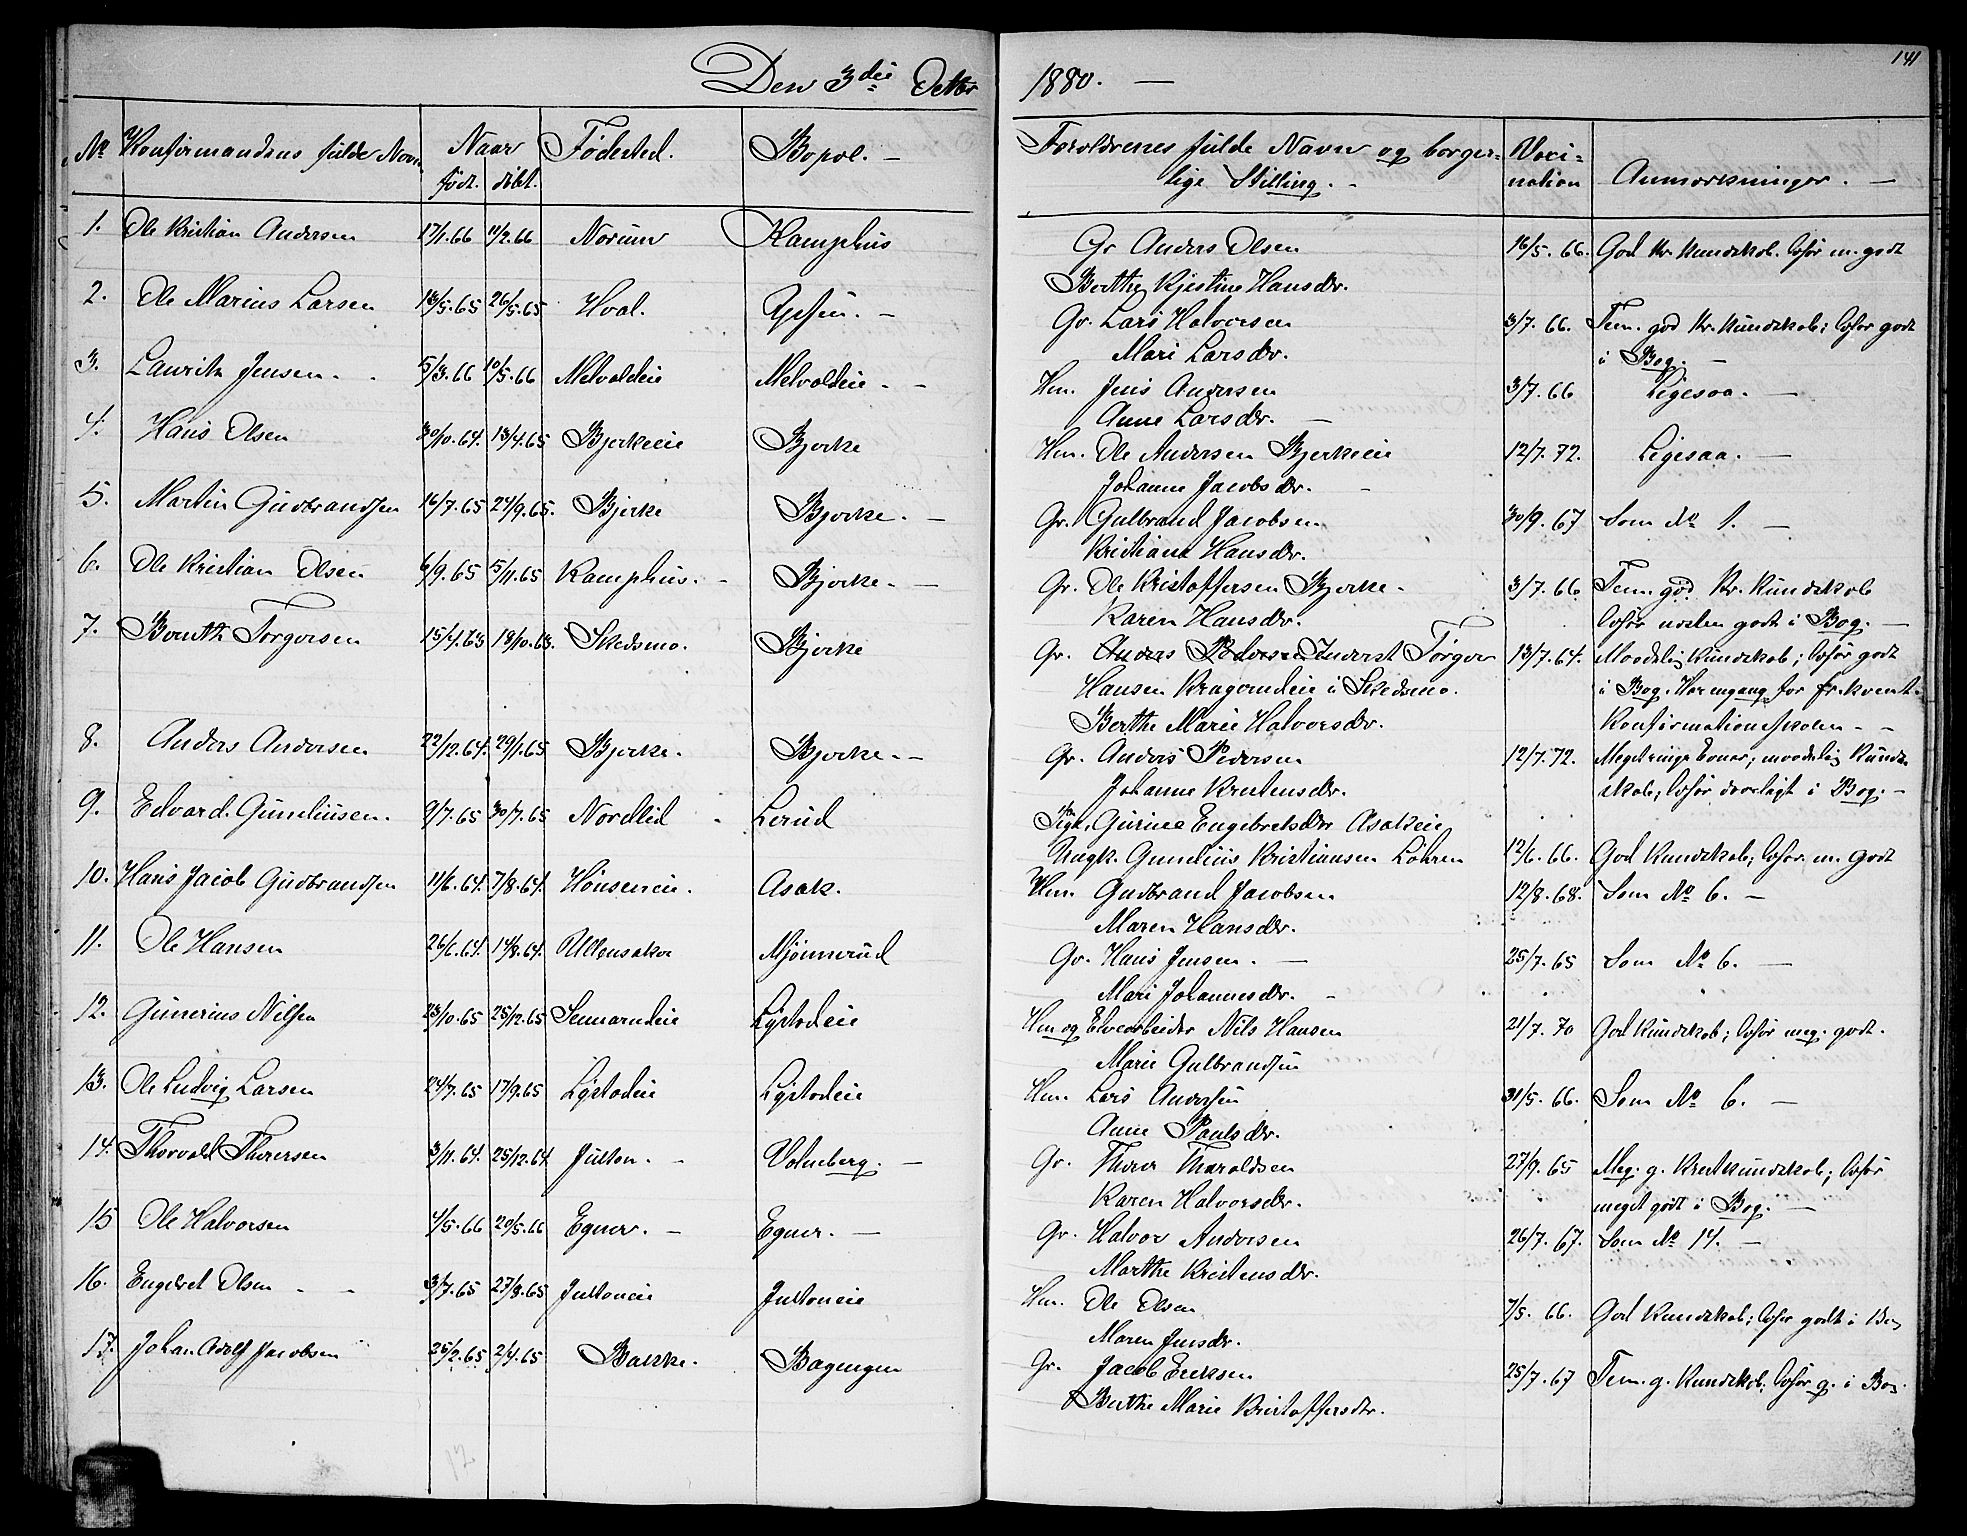 141
Den 3die Octbr 1880. —
No Konfirmandens fulde Navn Naar Fødested. Bopæl. — Forældrenes fulde Navne og borger- Vaxi-
født. døbt. lige Stilling. — nation Anmærkninger. —
1. Ole Kristian Andersen 17/1.66 11/2.66 Norum Kamphus Gr. Anders Olsen 16/5.66. God Kr. Kundskab. Opfør m. godt
Berthe Kjerstine Hansdr.
2. Ole Marius Larsen 13/5.65 26/5.65 Hval. Gr. Lars Halvorsen 3/7.66. Tem. god Kr. Kundskab; Opfør godt
Mari Larsdr. i Bog. —
3. Lauritz Jensen. 5/3.66 10/5.66 Melvoldeie Melvoldeie. Hm. Jens Andersen 3/7.66 Ligesaa. —
Anne Larsdr. —
4. Hans Olsen 30/10.64. 13/4.65 Bjerkeeie Bjerke Hm. Ole Andersen Bjerkeeie 12/7.72. Ligesaa. —
Johanne Jacobsdr.
5. Martin Gudbrandsen 16/7.65 24/9.65. Bjerke Bjerke. — Gr. Gulbrand Jacobsen 30/9.67 Som No 1. —
Kristiane Hansdr.
6. Ole Kristian Olsen 6/9.65 5/11.65 Kamphus. Bjerke. — Gr. Ole Kristoffersen Bjerke. 3/7.66. Tem. god Kr. Kundskab
Karen Hansdr. Opfør næsten godt i Bog. —
7. Bernth Torgersen 15/4.63 18/10.63. Skedsmo. Bjerke Gr. Anders Pedersen Inderst Torger 13/7.64. Maadelig Kundskab; Opfør godt
Hansen Kragerudeie i Skedsmo. i Bog. Har engang før frekvent.
Berthe Marie Halvorsdr. Konfirmationsskolen. —
8. Anders Andersen 22/12.64. 29/1.65 Bjerke. Bjerke. — Gr. Anders Pedersen 12/7.72. Meget ringe Evner; maadelig Kund-
Johanne Kristensdr. skab; Opfør daarligt i Bog. —
9. Edvard Guneliusen. 9/7.65 30/7.65 Nordlid Lerud Pige. Gurine Engebretsdr Asakeie
Ungk. Gunelius Kristiansen Løkren 12/6.66. God Kundskab; Opfør. m. godt
10. Hans Jacob Gudbrandsen 11/6.64. 7/8.64. Hønseneie. Asak. Hm. Gudbrand Jacobsen 12/8.68. Som No 6. —
Maren Hansdr.
11. Ole Hansen 26/6.64. 14/8.64. Ullensaker Mjønnerud Gr. Hans Jensen. — 25/7.65 Som No 6. —
Mari Johannesdr.
12. Gunerius Nilsen 23/10.65 25/12.65 Sennerudeie Lystadeie Hm og Elvearbeider Nils Hansen 21/7.70 God Kundskab; Opfør meg. godt.
Marie Gulbrandsen
13. Ole Ludvig Larsen 24/7.65 17/9.65 Lystadeie Lystadeie Hm. Lars Andersen 31/5.66. Som No 6. —
Anne Paulsdr.
14. Thorvald Thoresen 3/11.64. 25/12.64 Julton. Valneberg. — Gr. Thore Haraldsen 27/9.65 Meg. g. Kristkundskab; Opfør
Karen Halvorsdr. meget godt i Bog. —
15 Ole Halvorsen 4/5.66 20/5.66 Egner. — Egner. — Gr. Halvor Andersen 26/7.67. Som No 14. —
Marthe Kristensdr.
16. Engebret Olsen 3/7.65 27/8.65 Jultoneie Jultoneie Hm. Ole Olsen 7/5.66. God Kundskab; Opfør godt i Bog
Maren Jensdr.
17. Johan Adolf Jacobsen 25/2.65 2/4.65 Bakke. Bagengen Gr. Jacob Eriksen 25/7.67 Tem. g. Kundskab. Opfør g. i Bog.
Berthe Marie Kristoffersdr.
12